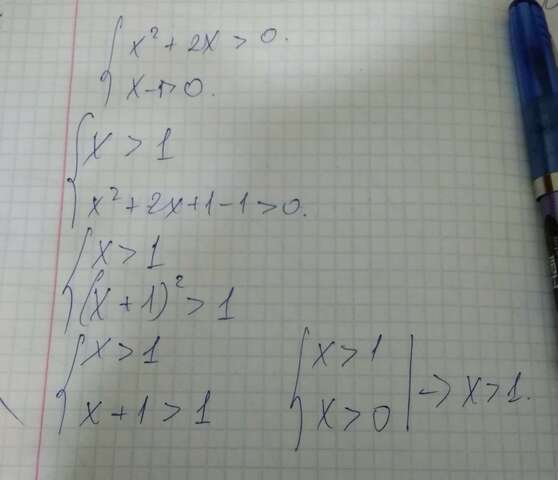 { x² + 2x > 0.
x - 1 > 0.
{ x > 1
x² + 2x + 1 - 1 > 0.
{ x > 1
(x + 1)² > 1
{ x > 1
x + 1 > 1
{ x > 1
x > 0 | -> x > 1.